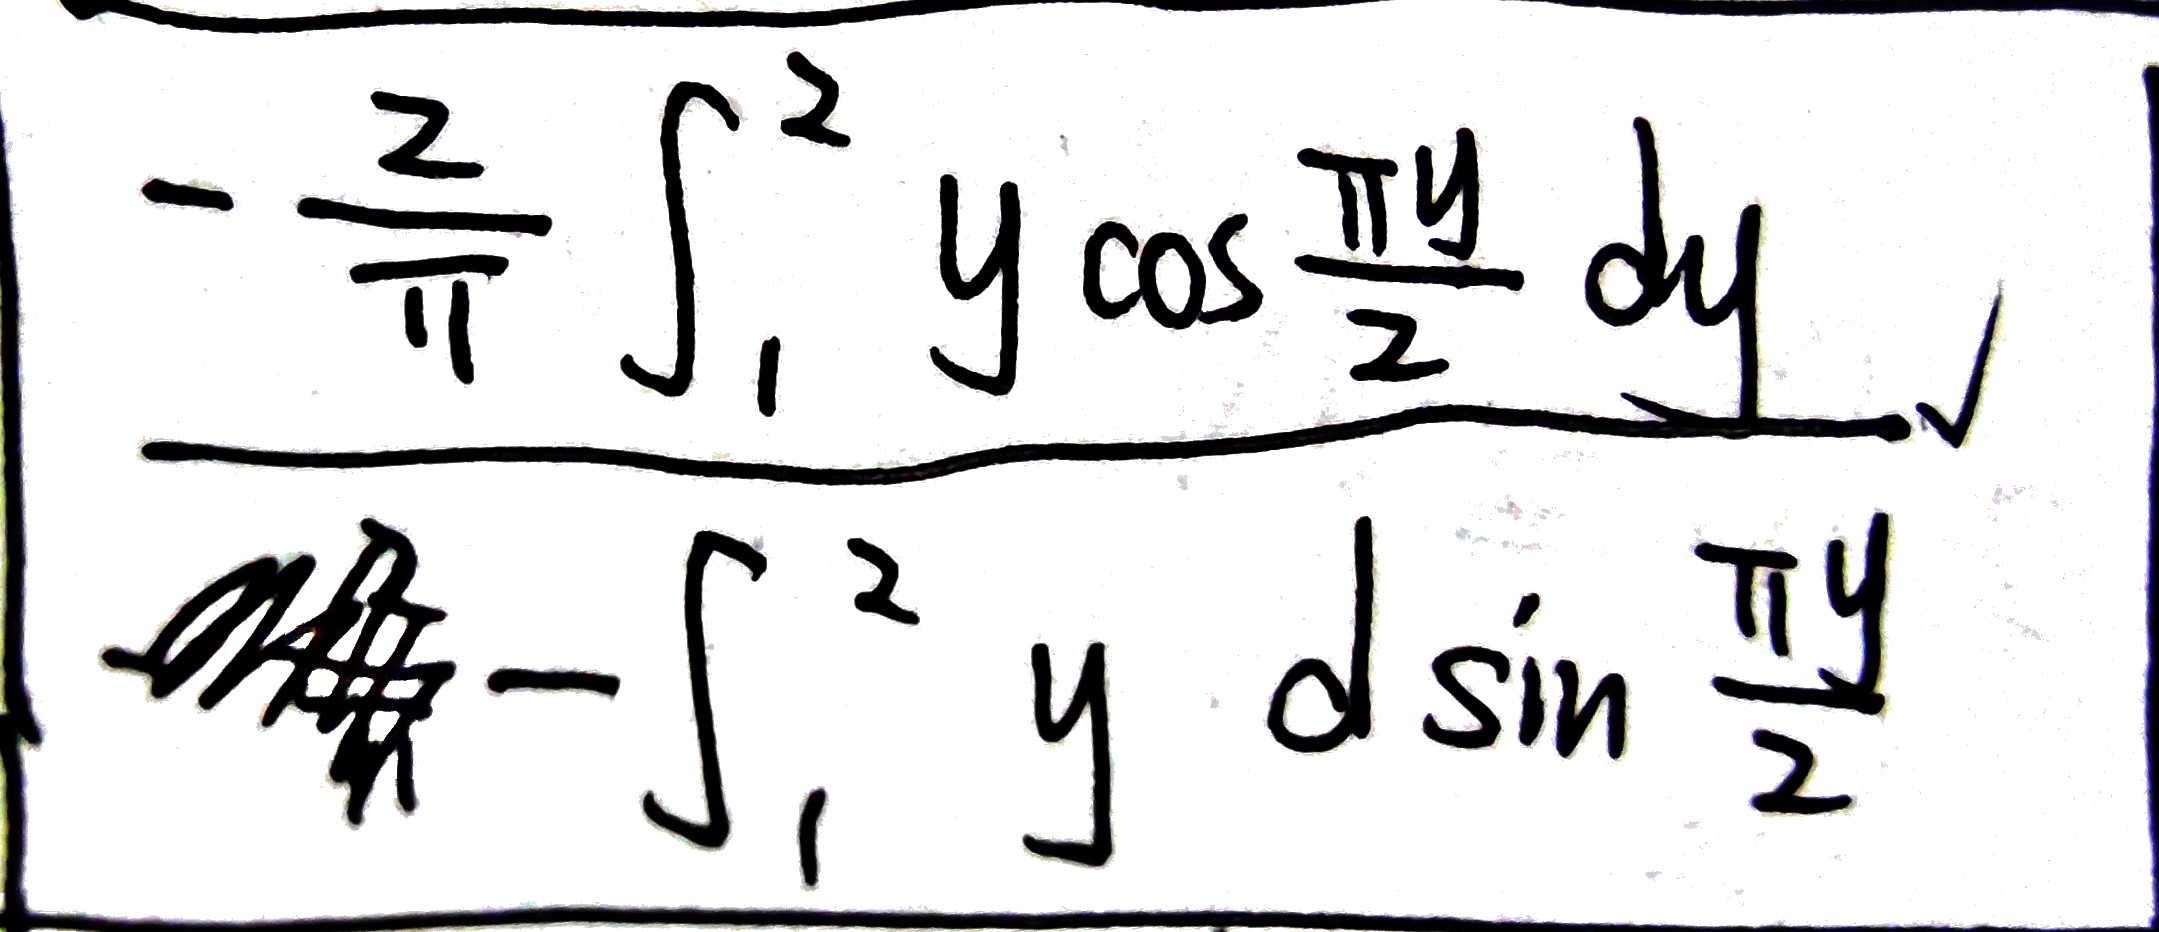 -\frac{2}{\pi} \int_1^2 y \cos \frac{\pi y}{2} dy ✓
-\int_1^2 y d \sin \frac{\pi y}{2}